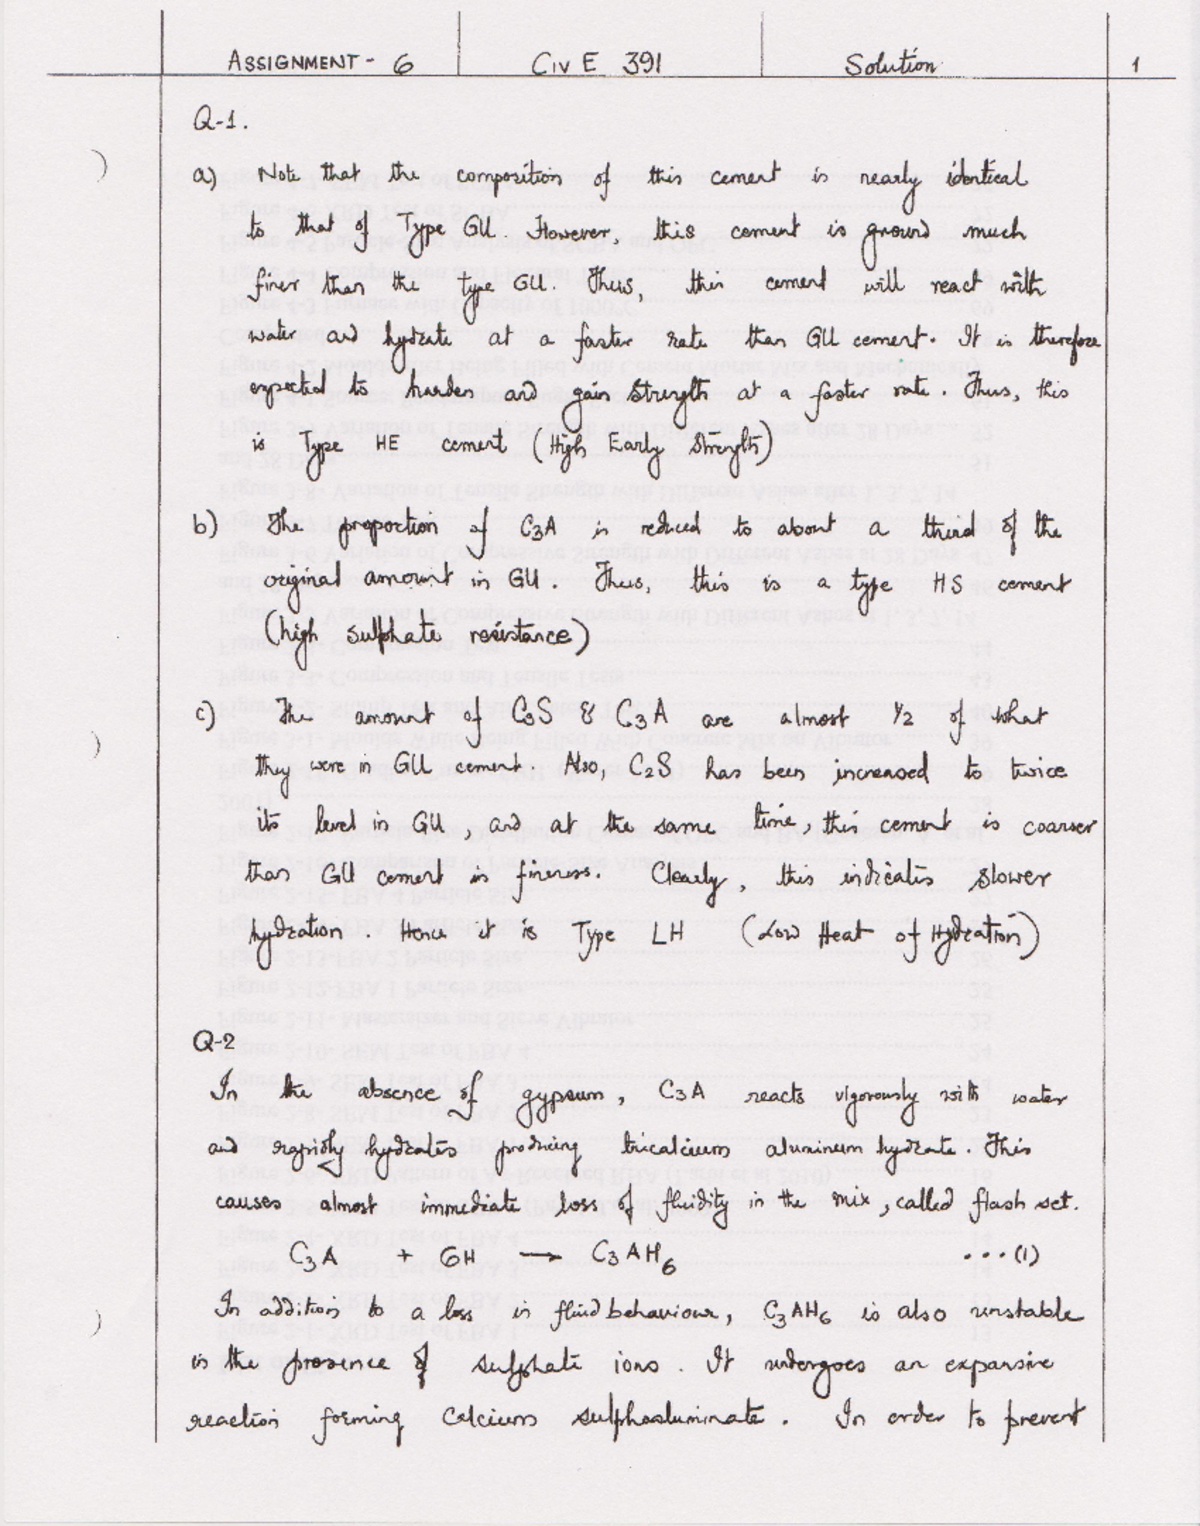 ASSIGNMENT - 6 Civ E 391 Solution 1
Q-1.
a) Note that the composition of this cement is nearly identical
to that of Type GU. However, this cement is ground much
finer than the type GU. Thus, this cement will react with
water and hydrate at a faster rate than GU cement. It is therefore
expected to harden and gain strength at a faster rate. Thus, this
is Type HE cement (High Early Strength)
b) The proportion of C3A is reduced to about a third of the
original amount in GU. Thus, this is a type HS cement
(high sulphate resistance)
c) The amount of C3S & C3A are almost 1/2 of what
they were in GU cement. Also, C2S has been increased to twice
its level in GU, and at the same time, this cement is coarser
than GU cement in fineness. Clearly, this indicates slower
hydration. Hence it is Type LH (Low Heat of Hydration)
Q-2
In the absence of gypsum, C3A reacts vigorously with water
and rapidly hydrates producing tricalcium aluminum hydrate. This
causes almost immediate loss of fluidity in the mix, called flash set.
C3A + 6H → C3AH6 ...(1)
In addition to a loss in fluid behaviour, C3AH6 is also unstable
in the presence of sulphate ions. It undergoes an expansive
reaction forming calcium sulphoaluminate. In order to prevent